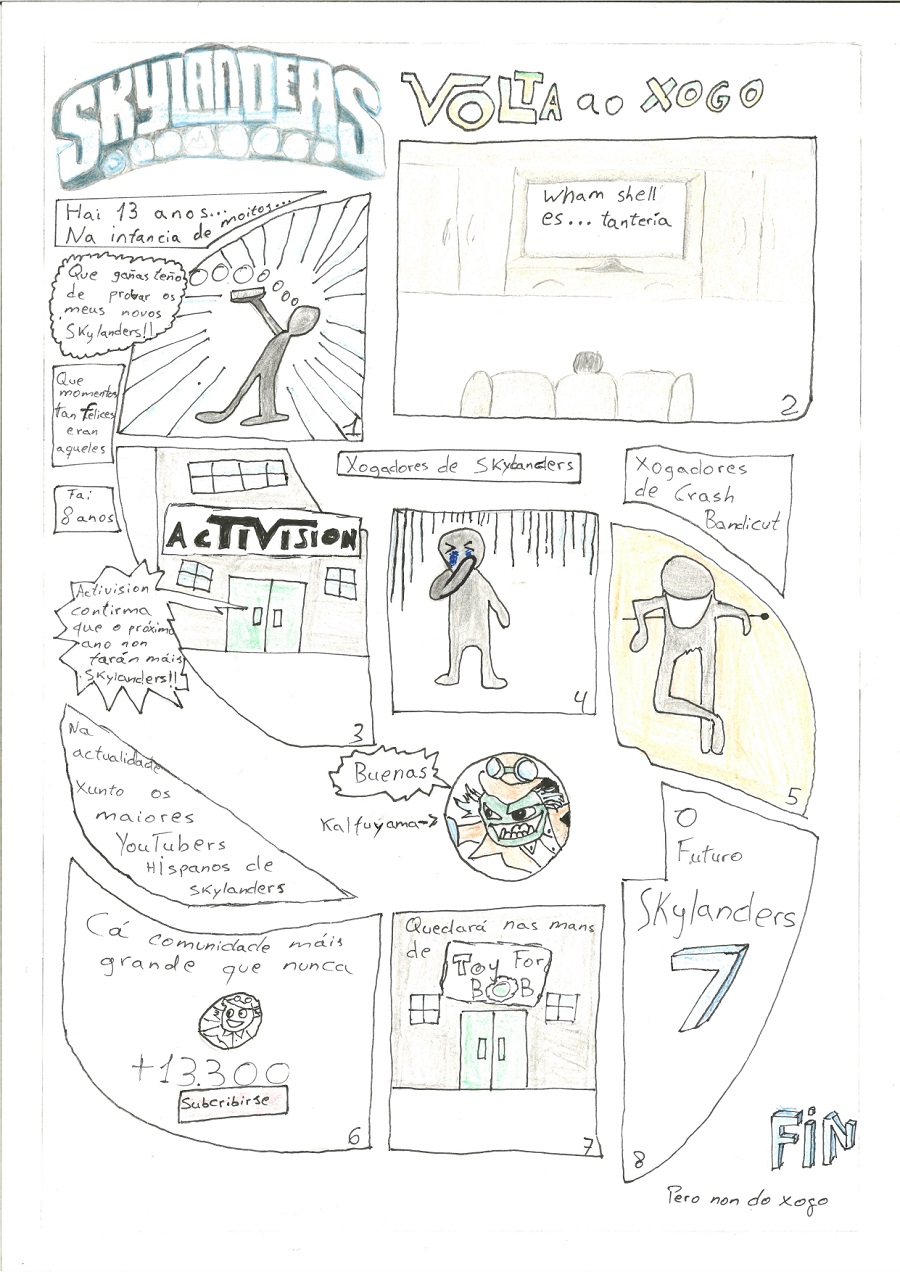 SKYLANDERS
VOLTA ao XOGO
Hai 13 anos...
Na infancia de moitos...
Que gañas teño
de probar os
meus novos
Skylanders!!
Que
momentos
tan felices
eran
aqueles
1
Wham shell
es... tantería
2
Fai
8 anos
ACTIVISION
Activision
confirma
que o próximo
ano non
farán máis
Skylanders!!
3
Xogadores de Skylanders
4
Xogadores
de Crash
Bandicut
5
Na
actualidade
Xunto os
maiores
YouTubers
Hispanos de
Skylanders
Buenas
Kalfuyama->
Cá comunidade máis
grande que nunca
+13.300
Subcribirse
6
Quedará nas mans
de
Toy For
BOB
7
O
Futuro
Skylanders
7
8
FiN
Pero non do xogo